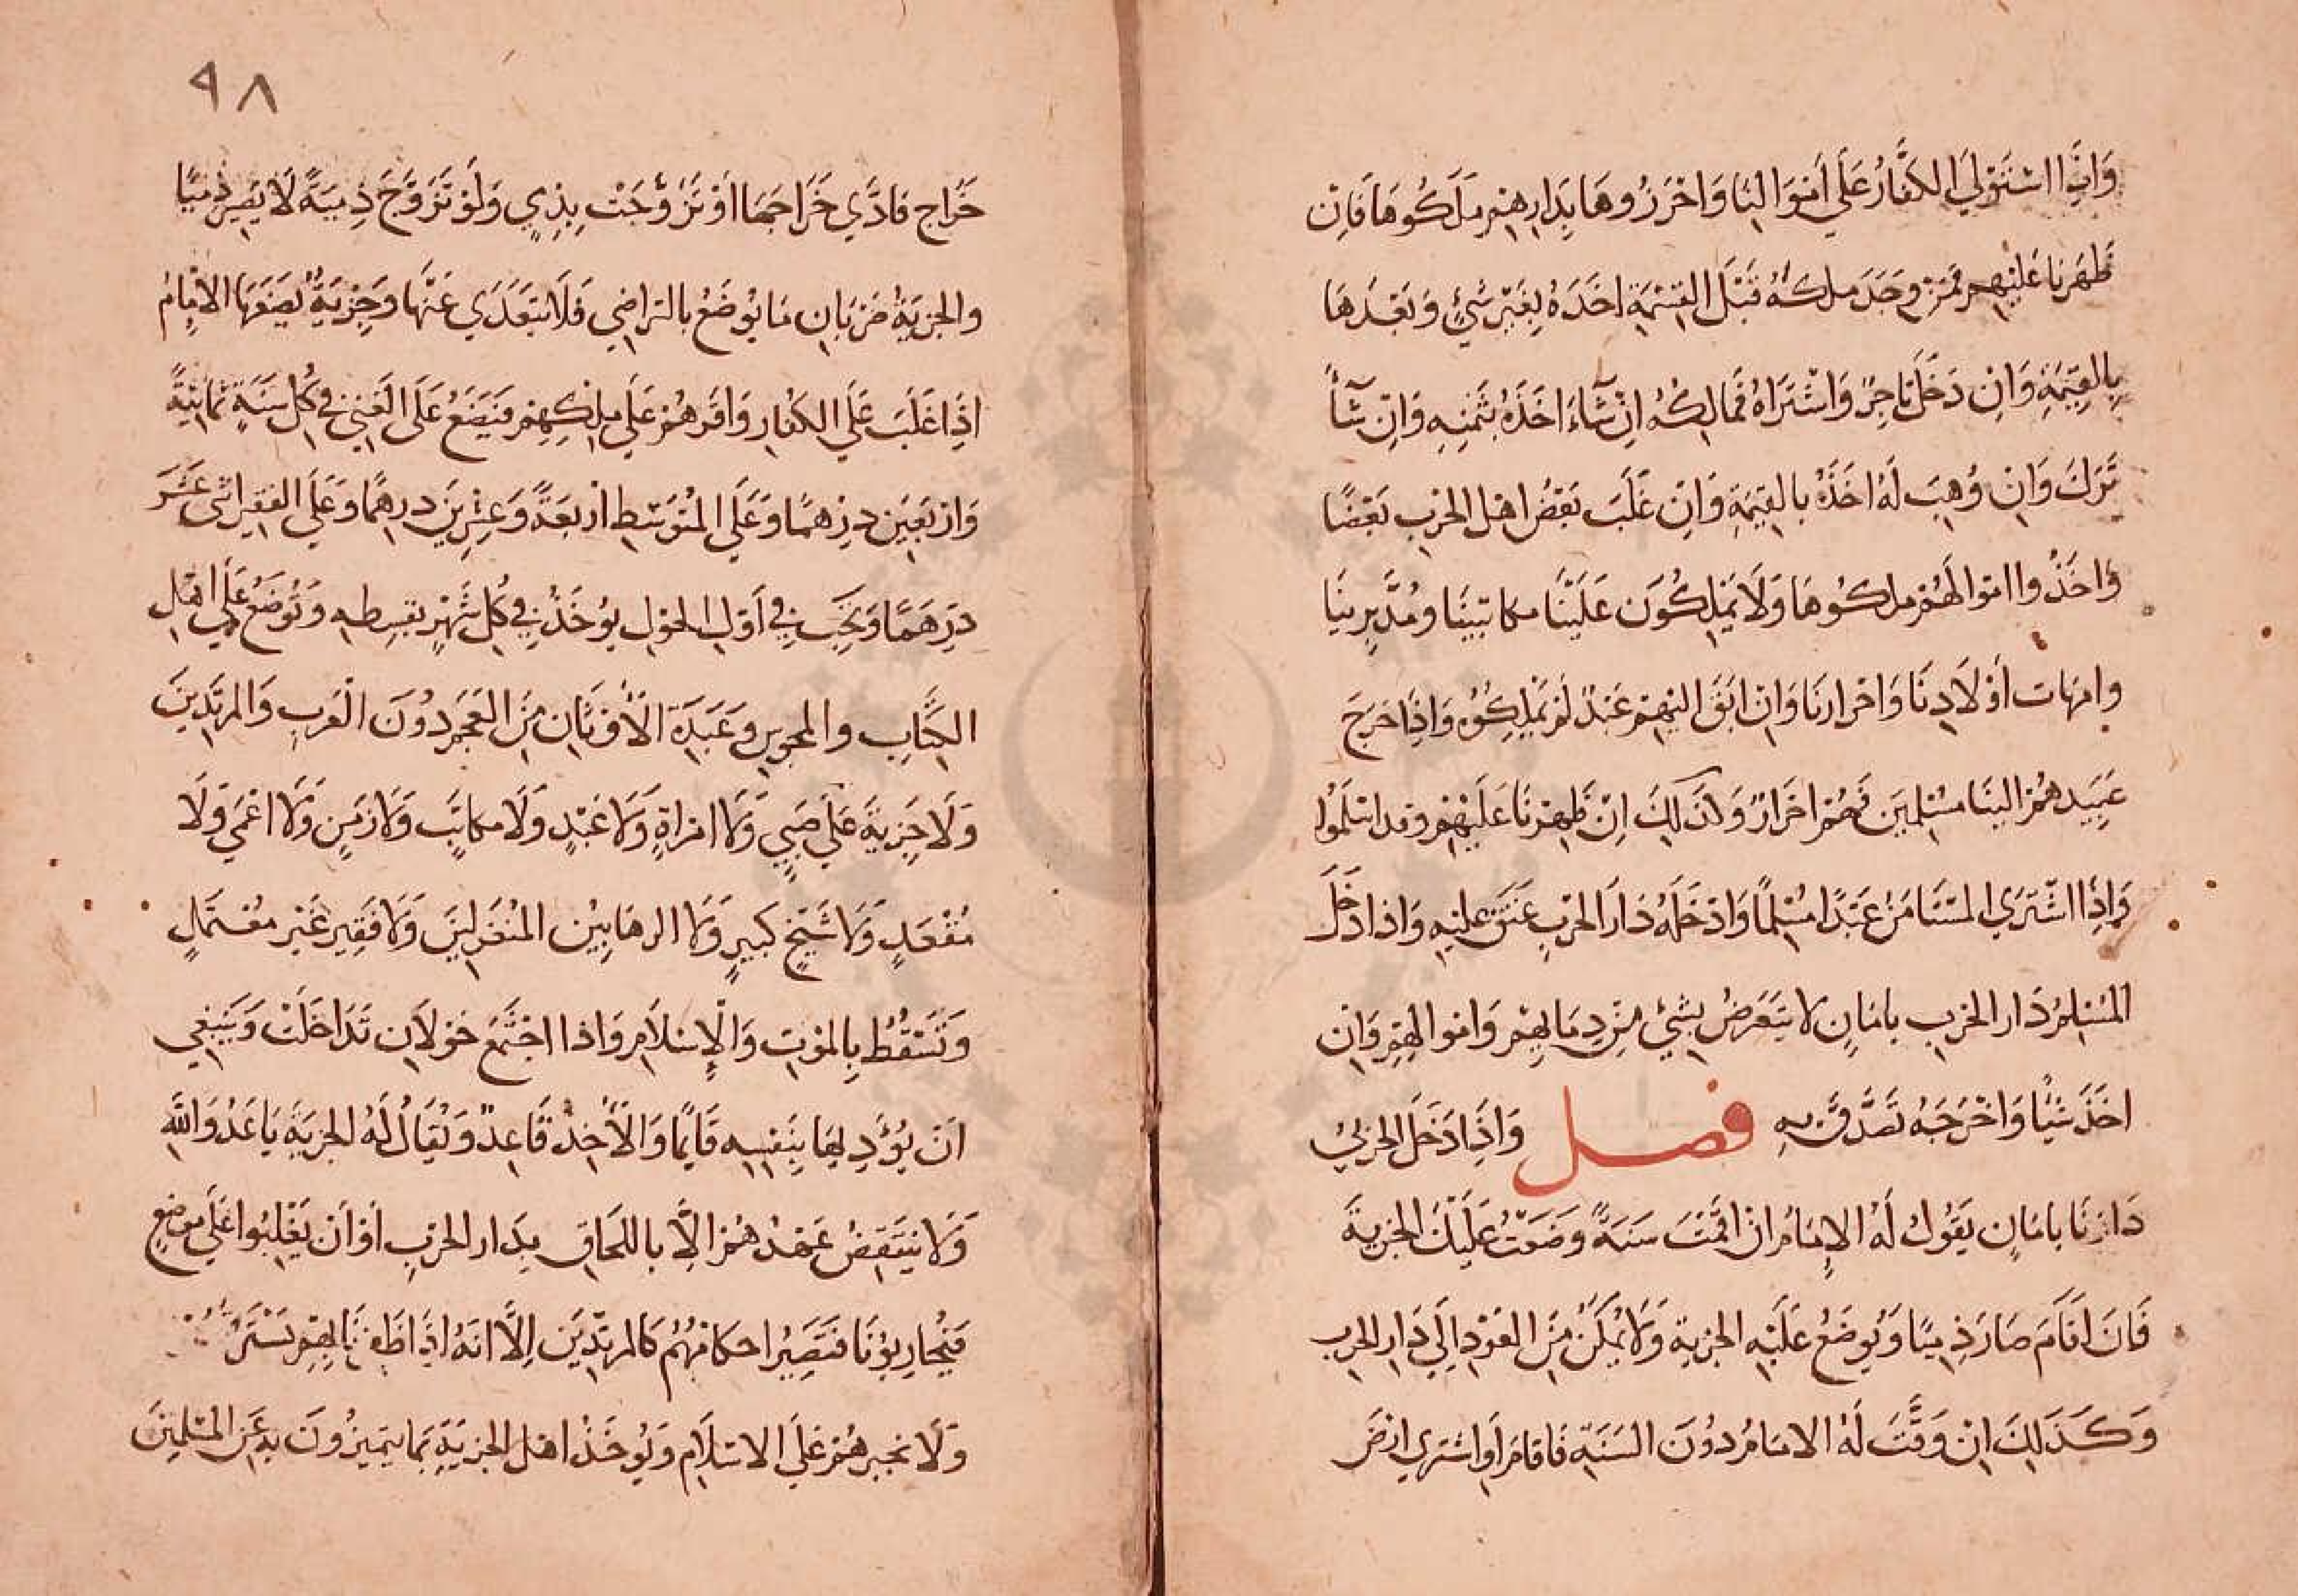 وَاِذَا اسْتَوْلَي الكفَّارُ عَلَي اَمْوَالِنَا وَاحْرَزُوهَا بِدَارِهِمْ مَلَكُوهَا فَاِنْ
ظَهَرْنَا عَلَيْهِمْ فَمَنْ وَجَدَ مِلْكَهُ قَبْلَ القِسْمَةِ اخَذَهُ بِغَيْرِ شَيْءٍ وَبَعْدَهَا
بِالقِيمَةِ وَاِنْ دَخَلَ تَاجِرٌ وَاشْتَرَاهُ فَمَالِكُهُ اِنْ شَآءَ اخَذَهُ بِثَمَنِهِ وَاِنْ شَآءَ
تَرَكَ وَاِنْ وُهِبَ لَهُ اخَذَهُ بالقِيمَةِ وَاِنْ غَلَبَ بَعْضُ اهْل الحَرْبِ بَعْضًا
وَاخَذُوا امْوَالَهُمْ مَلَكُوهَا وَلَا يَمْلِكُونَ عَلَيْنَا مكاتبينَا ومُدَبَّرِينَا
وامهَات أَوْلَادِنَا وَاحْرَارنَا وَاِنْ ابَقَ اليْهِمْ عَبْدٌ لَمْ يَمْلِكُوْهُ وَاِذَا خَرَجَ
عَبِيدهُمْ الينَا مسْلِمِينَ فَهُمْ احْرَارٌ وَكَذَلِكَ اِنْ ظَهَرْنَا عَلَيْهِمْ وقد اسْلَمُوْا
وَاِذَا اشْتَرَي المسْتَامَنُ عَبْدًا مُسْلِمًا وَادْخَلَهُ دَارَ الحَرْبِ عَتَقَ عليْهِ وَاذا دَخَلَ
المسْلِمُ دَار الحَرْبِ بامَانٍ لَا يتَعَرَّضُ بِشَيْءٍ مِنْ دِمَائِهِمْ وَامْوَالِهِمْ وَاِنْ
اخَذَ شَيْئًا وَاخْرَجَهُ تَصَدَّقَ بِهِ فصل وَاِذَا دَخَلَ الحَرْبيُّ
دَارَنَا بامَانٍ يَقُوْلُ لَهُ الاِمَامُ ان اقَمْتَ سَنَةً وَضَعْتُ عَلَيْكَ الجِزْيَةَ
فَاِنْ اقَامَ صَارَ ذِمّيًا وَيُوضَعُ عَلَيْهِ الجزية وَلَا يُمَكَّنُ مِنَ العَوْدِ اِلَي دَارِ الحرب
وَكَذَلِكَ اِنْ وَقَّتَ لَهُ الامَامُ دُونَ السَنَةِ فَاقَامَ أَو اشترَي ارْضَ
٩٨
خَرَاجٍ فَادَّي خَرَاجَهَا اَوْ تَزَوَّجَتْ بِذِمّي وَلَوْ تَزَوَّجَ ذِمِيَةً لَا يَصِيرُ ذِمّيًا
والجزيَةُ ضَرْبَانِ مَا يُوضَعُ بالتراضِي فَلَا يتَعَدَّي عَنْهَا وَجِزْيَةٌ يَضَعُهَا الاِمَامُ
اذِا غَلَبَ عَلَي الكفَّارِ وَاقَرهُمْ عَلَي مِلْكِهِمْ فَيَضَعُ عَلَي الغَنِي في كُلِّ سَنَةٍ ثمَانيَةً
وَارْبَعِيَن دِرْهَمًا وَعَلَي المتَوَسّطِ ارْبَعَةً وَعِشْرِينَ درهَمًا وَعَلَي الفقير اثنَى عَشَرَ
دِرْهَمًا وَتَجِبُ فِي أَوَّلِ الحَوْلِ يوخَذُ فِي كُلِّ شَهْرٍ بقسِطِهِ وَتُوضَعُ عَلَي اهْلِ
الكِتَابِ والمجوسِ وَعَبَدَة الاَوْثَانِ مِنَ العَجَمِ دُونَ العَربِ وَالمرتَدِّينَ
وَلَا جِزيَةَ عَلَي صَبِيٍ وَلَا امْرَاةٍ وَلَا عَبْدٍ وَلَا مكاتَبٍ وَلَا زَمِنٍ وَلَا اعْمَي وَلَا
مُقْعَدٍ وَلَا شَيْخٍ كَبيرٍ وَلَا الرهَابيْن المنْعَزِلِينَ وَلَا فَقِيرٍ غَيْرِ معْتَمِلٍ
وَتَسْقُطُ بِالمَوْتِ وَالْاِسْلَامِ وَاذا اجْتَمَعَ حَوْلَانِ تَدَاخَلَتْ وَيَنْبَغِي
انْ يُؤَدِّيهَا بِنَفْسِهِ قَايِمًا وَالْآخِذُ قَاعِدٌ وَيُقَالُ لَهُ الجزيَةَ يَاعَدُوَّ اللهِ
وَلَا ينتَقِضُ عَهْدُهُمْ الَّا باللحَاقِ بِدَار الحَرْبِ اَوْ اَنْ يَغْلِبُوا عَلَي مَوضِعٍ
فَيُحَارِبُوْنَا فتَصِيرُ احكَامُهُمْ كَالمرتدِّينَ اِلَّا انَهُ اذَا ظَفِرْنَا بِهِمْ نَسْتَرِقُّهُمْ
وَلَا نجْبِرهُمْ عَلَي الاسْلَامِ وَيُوخَذُ اهْل الجزيَةِ بِمَا يتميزُونَ بِهِ عَنِ المسْلِمِينَ